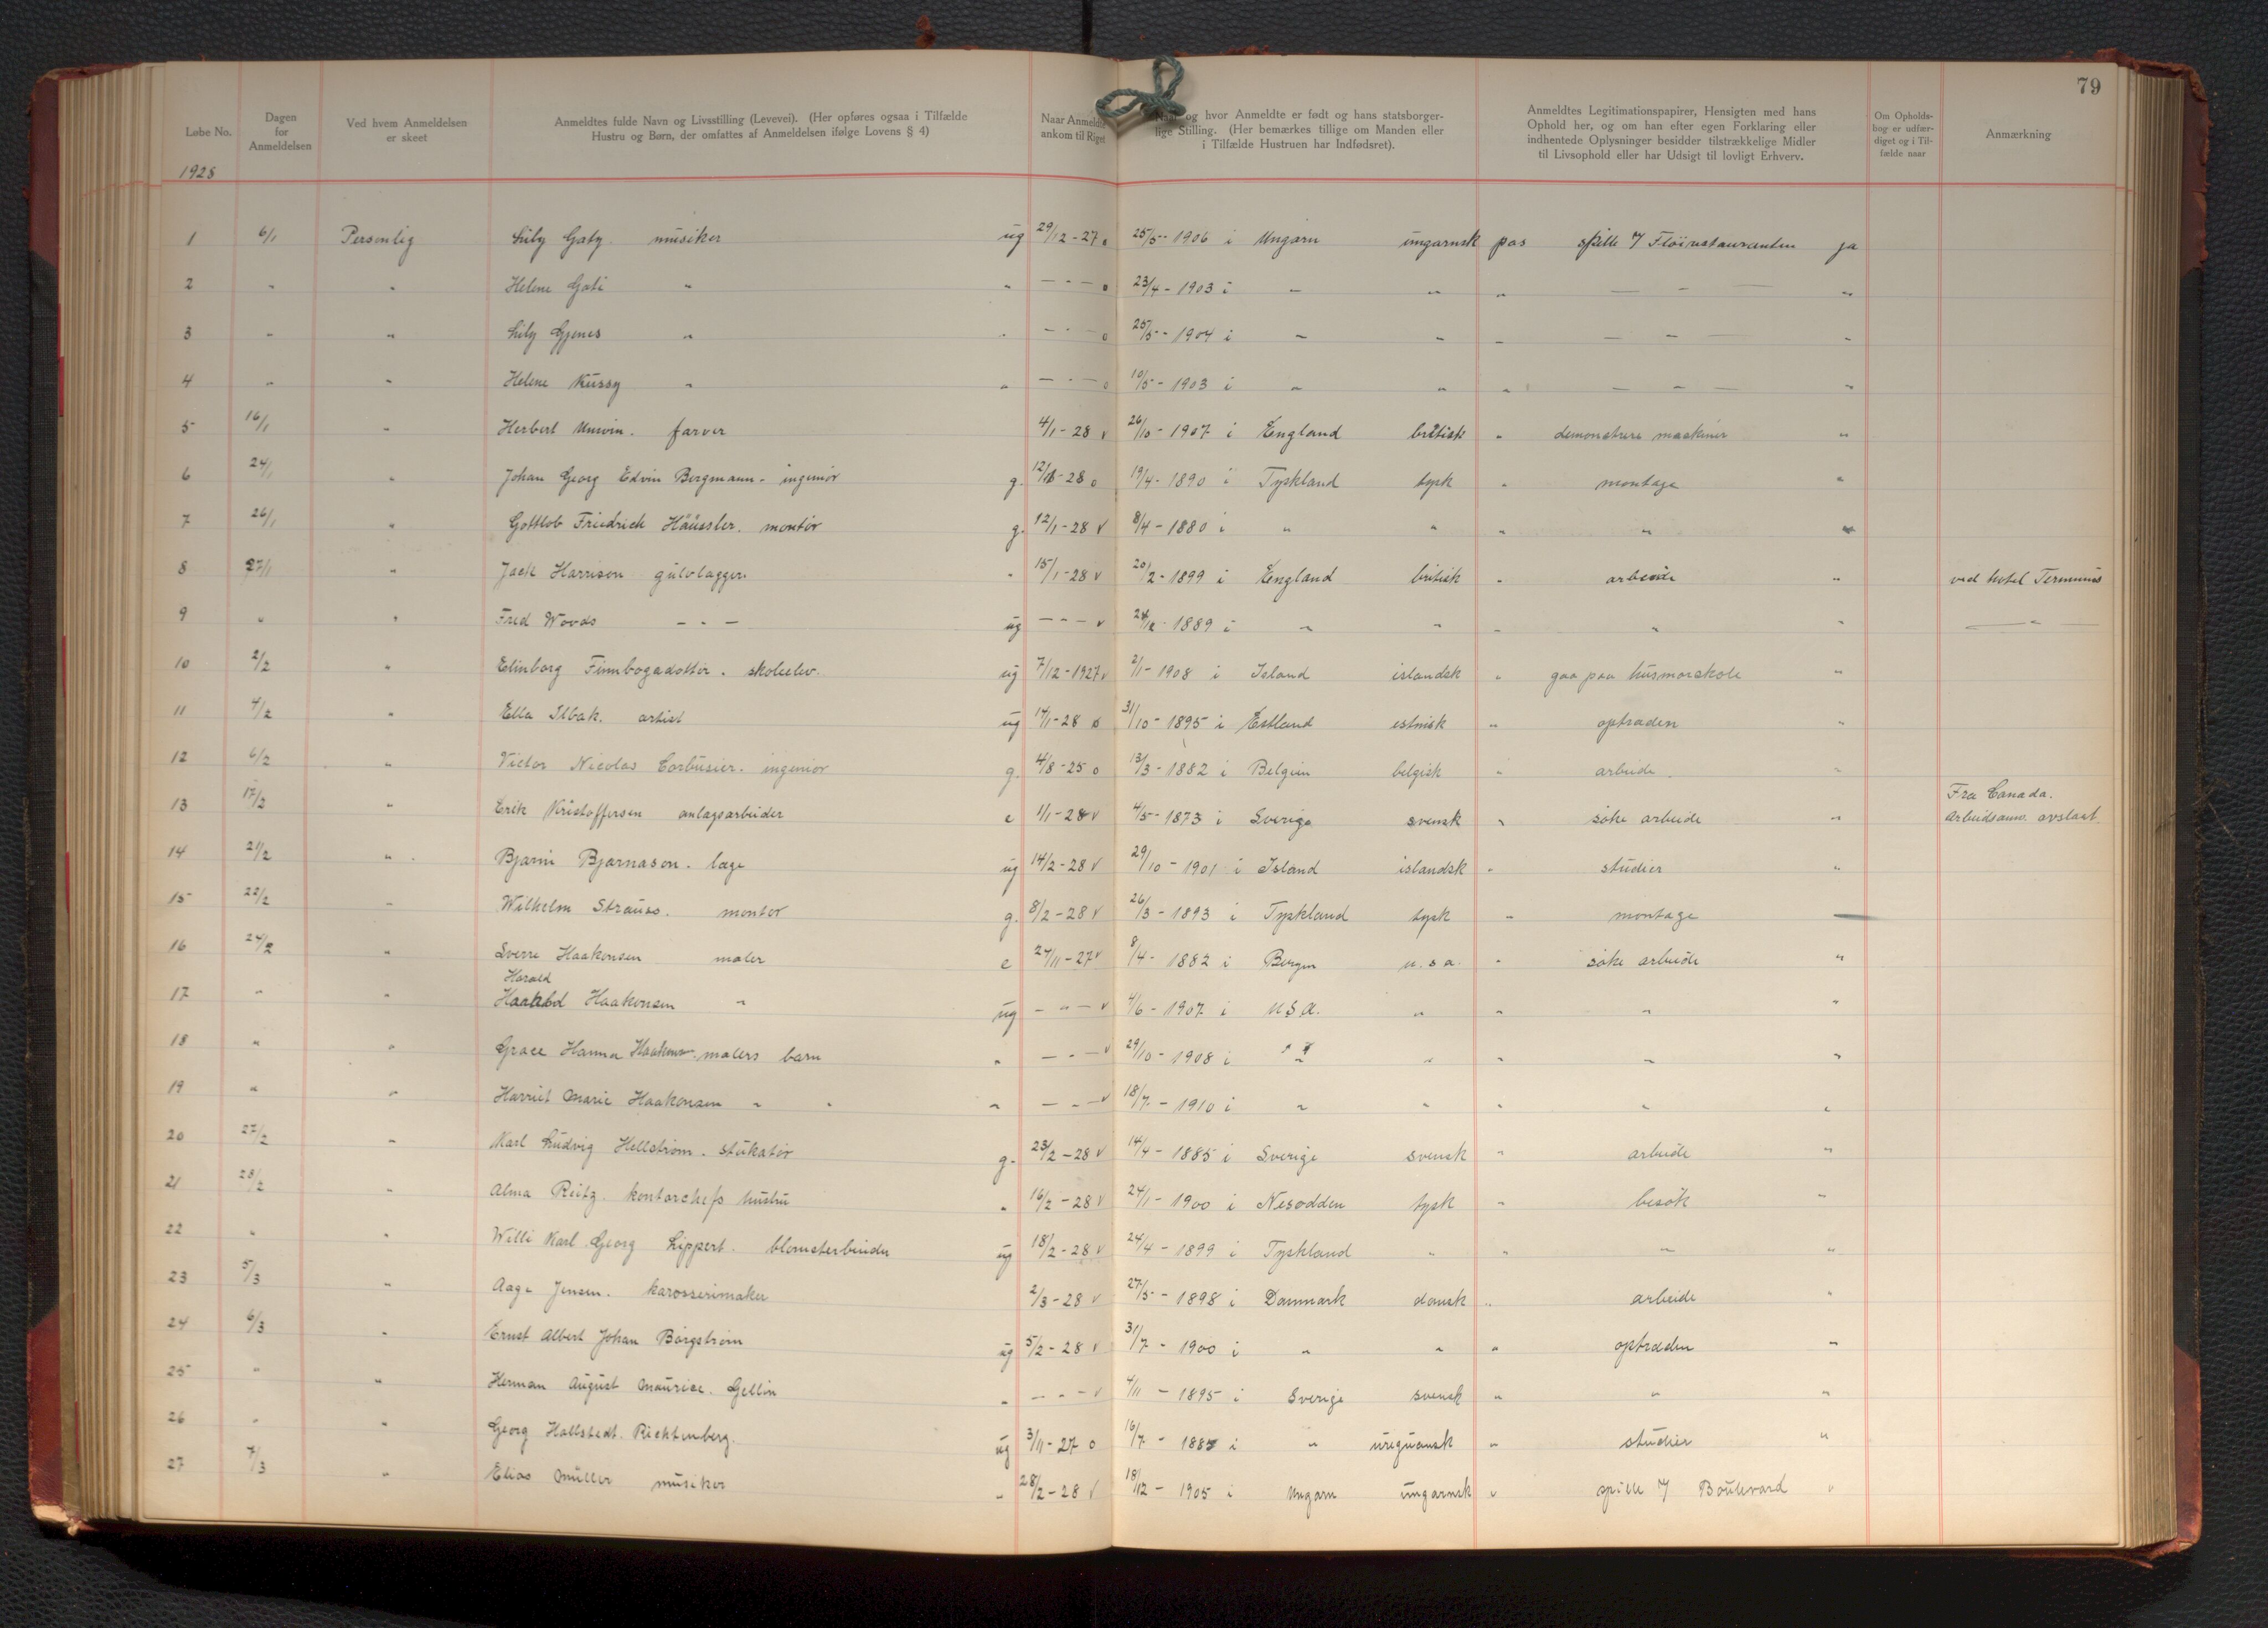 79
Løbe No.
Dagen for Anmeldelsen
Ved hvem Anmeldelsen er skeet
Anmeldtes fulde Navn og Livsstilling (Levevei). (Her opføres ogsaa i Tilfælde Hustru og Børn, der omfattes af Anmeldelsen ifølge Lovens § 4)
Naar Anmeldte ankom til Riget
og hvor Anmeldte er født og hans statsborgerlige Stilling. (Her bemærkes tillige om Manden eller i Tilfælde Hustruen har Indfødsret).
Anmeldtes Legitimationspapirer, Hensigten med hans Ophold her, og om han efter egen Forklaring eller indhentede Oplysninger besidder tilstrækkelige Midler til Livsophold eller har Udsigt til lovligt Erhverv.
Om Opholdsbog er udfærdiget og i Tilfælde naar
Anmærkning
1928
1 6/1 Personlig Lily Gaty. musiker ug 29/12-27 o 25/5-1906 i Ungarn ungarnsk pas spille i/ Fløirestauranten ja
2 " " Helene Gati " " — " — o 23/4-1903 i " " " — " — "
3 " " Lily Gjenes " " — " — o 25/5-1904 i " " " — " — "
4 " " Helene Kussy " " — " — o 10/5-1903 i " " " — " — "
5 16/1 " Herbert Unwin. farver 4/1-28 v 26/10-1907 i England britisk " demonstrere maskiner "
6 24/1 " Johan Georg Edvin Bergmann. ingeniør g. 12/1-28 o 19/4-1890 i Tyskland tysk " montage "
7 26/1 " Gottlob Friedrich Häussler. montør g. 12/1-28 v 8/4-1880 i " " " " "
8 27/1 " Jack Harrison gulvlægger. " 15/1-28 v 20/2-1899 i England britisk " arbeide " ved hotel Terminus
9 " " Fred Woods — " — ug — " — v 24/12-1889 i " " " " " — " —
10 2/2 " Elinborg Finnbogadottir. skoleelev. ug 7/12-1927 v 2/1-1908 i Island islandsk " gaa paa husmorskole "
11 4/2 " Ella Ilbak. artist ug 14/1-28 o 31/10-1895 i Estland estnisk " optræden "
12 6/2 " Victor Nicolas Corbusier. ingeniør g. 4/8-25 o 13/3-1882 i Belgien belgisk " arbeide. "
13 17/2 " Erik Kristoffersen anlægsarbeider e 1/1-28 v 4/5-1873 i Sverige svensk " søke arbeide " Fra Canada. Arbeidsanv. avslaat
14 21/2 " Bjarni Bjarnason. læge ug 14/2-28 v 29/10-1901 i Island islandsk " studier "
15 22/2 " Wilhelm Strauss. montør g. 8/2-28 v 26/3-1893 i Tyskland tysk " montage —
16 24/2 " Sverre Haakonsen maler e 24/11-27 v 8/4-1882 i Bergen u.s.a. " søke arbeide "
Harald
17 " " Haakonsen " ug — " — v 4/6-1907 i U.S.A. " " " "
18 " " Grace Hanna Haakonsen malers barn " — " — v 29/10-1908 i " " " " "
19 " " Harriet Marie Haakonsen " " " — " — v 18/7-1910 i " " " " "
20 27/2 " Karl Ludvig Hellstrøm. stukatør g. 23/2-28 v 14/4-1885 i Sverige svensk " arbeide "
21 28/2 " Alma Reitz. kontorchefs hustru " 16/2-28 v 24/1-1900 i Nesodden tysk " besøk "
22 " " Willi Karl Georg Lippert. blomsterbinder ug 18/2-28 v 24/4-1899 i Tyskland " " " "
23 5/3 " Aage Jensen. karosserimaker 2/3-28 v 27/5-1898 i Danmark dansk " arbeide "
24 6/3 " Ernst Albert Johan Borgstrøm ug 5/2-28 v 31/7-1900 i " " " optræden "
25 " " Herman August Maurice. Gellin " — " — v 4/11-1895 i Sverige svensk " " "
26 " " Georg Hallstedt. Ricktenberg. ug 3/11-27 o 16/7-188 i " ureguansk " studier "
27 7/3 " Elias Müller musiker " 28/2-28 v 18/12-1905 i Ungarn ungarnsk " spille i/ Boulevard "